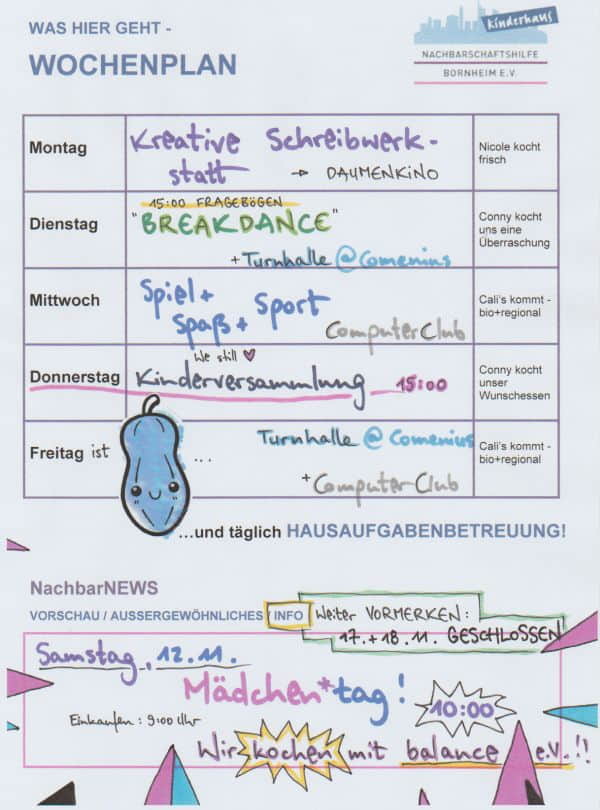 WAS HIER GEHT -
WOCHENPLAN
Kinderhaus
NACHBARSCHAFTSHILFE
BORNHEIM E.V.
Montag
Kreative Schreibwerk-
statt → DAUMENKINO
Nicole kocht
frisch
Dienstag
15:00 FRAGEBÖGEN
"BREAKDANCE"
+ Turnhalle @ Comenius
Conny kocht
uns eine
Überraschung
Mittwoch
Spiel + Sport
Spaß +
ComputerClub
Cali's kommt -
bio+regional
Donnerstag
We still ♥
Kinderversammlung 15:00
Conny kocht
unser
Wunschessen
Freitag ist ...
Turnhalle @ Comenius
+ ComputerClub
Cali's kommt -
bio+regional
...und täglich HAUSAUFGABENBETREUUNG!
NachbarNEWS
VORSCHAU / AUSSERGEWÖHNLICHES / INFO
Weiter VORMERKEN:
17.+18.11. GESCHLOSSEN
Samstag, 12.11.
Mädchen*tag!
10:00
Einkaufen: 9:00 Uhr
Wir kochen mit balance e.V.!!